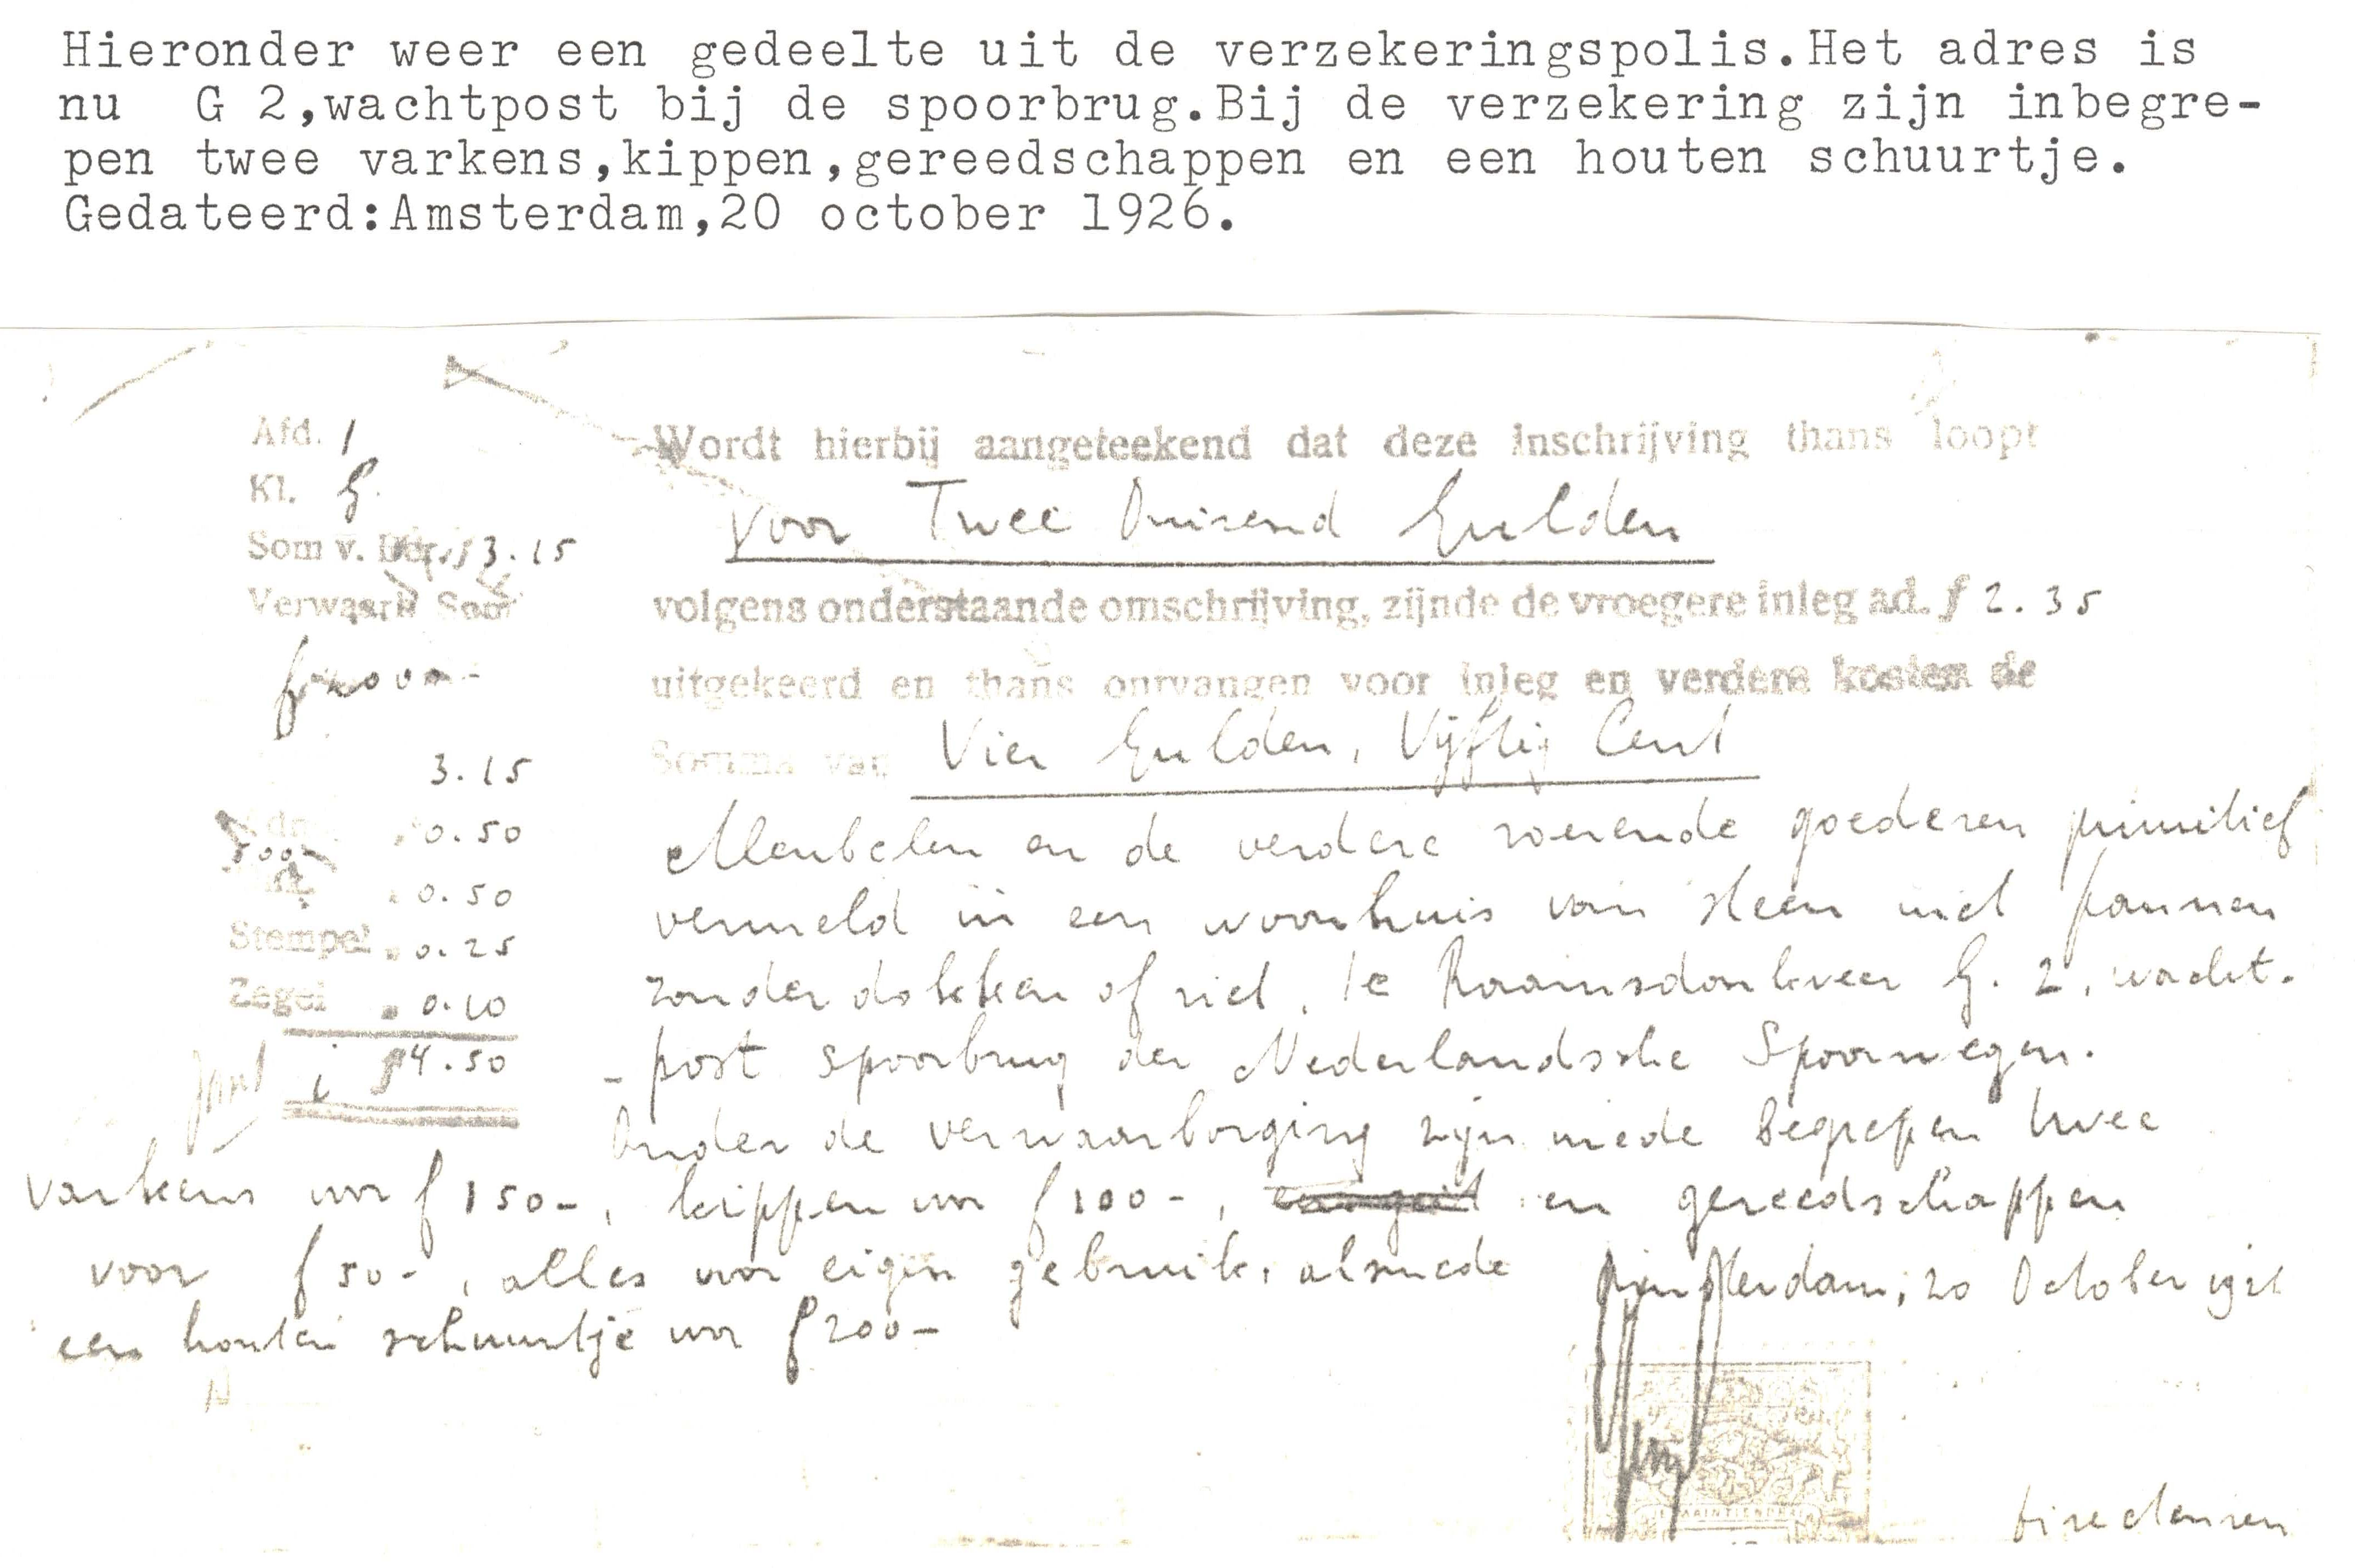 Hieronder weer een gedeelte uit de verzekeringspolis.Het adres is
nu G 2,wachtpost bij de spoorbrug.Bij de verzekering zijn inbegre-
pen twee varkens,kippen,gereedschappen en een houten schuurtje.
Gedateerd:Amsterdam,20 october 1926.
Afd. 1
Kl. G.
Som v. 3.15
Verwaarb Soor
3.15
0.50
0.50
Stempel 0.25
Zegel 0.10
f 4.50
Wordt hierbij aangeteekend dat deze inschrijving thans loopt
voor Twee Duizend Gulden
volgens onderstaande omschrijving, zijnde de vroegere inleg ad. f 2.35
uitgekeerd en thans ontvangen voor inleg en verdere kosten de
Somma van Vier Gulden, Vijftig Cent
Meubelen en de verdere roerende goederen primitief
vermeld in een woonhuis van steen met pannen
zonder dokken of riet, te Raamsdonkveer G. 2, wacht-
-post spoorbrug der Nederlandsche Spoorwegen.
Onder de verwaarborging zijn mede begrepen twee
varkens voor f 150-, kippen voor f 100-, een geit en gereedschappen
voor f 50-, alles voor eigen gebruik, alsmede
een houten schuurtje voor f 200-
Amsterdam, 20 October 1926
Directeuren